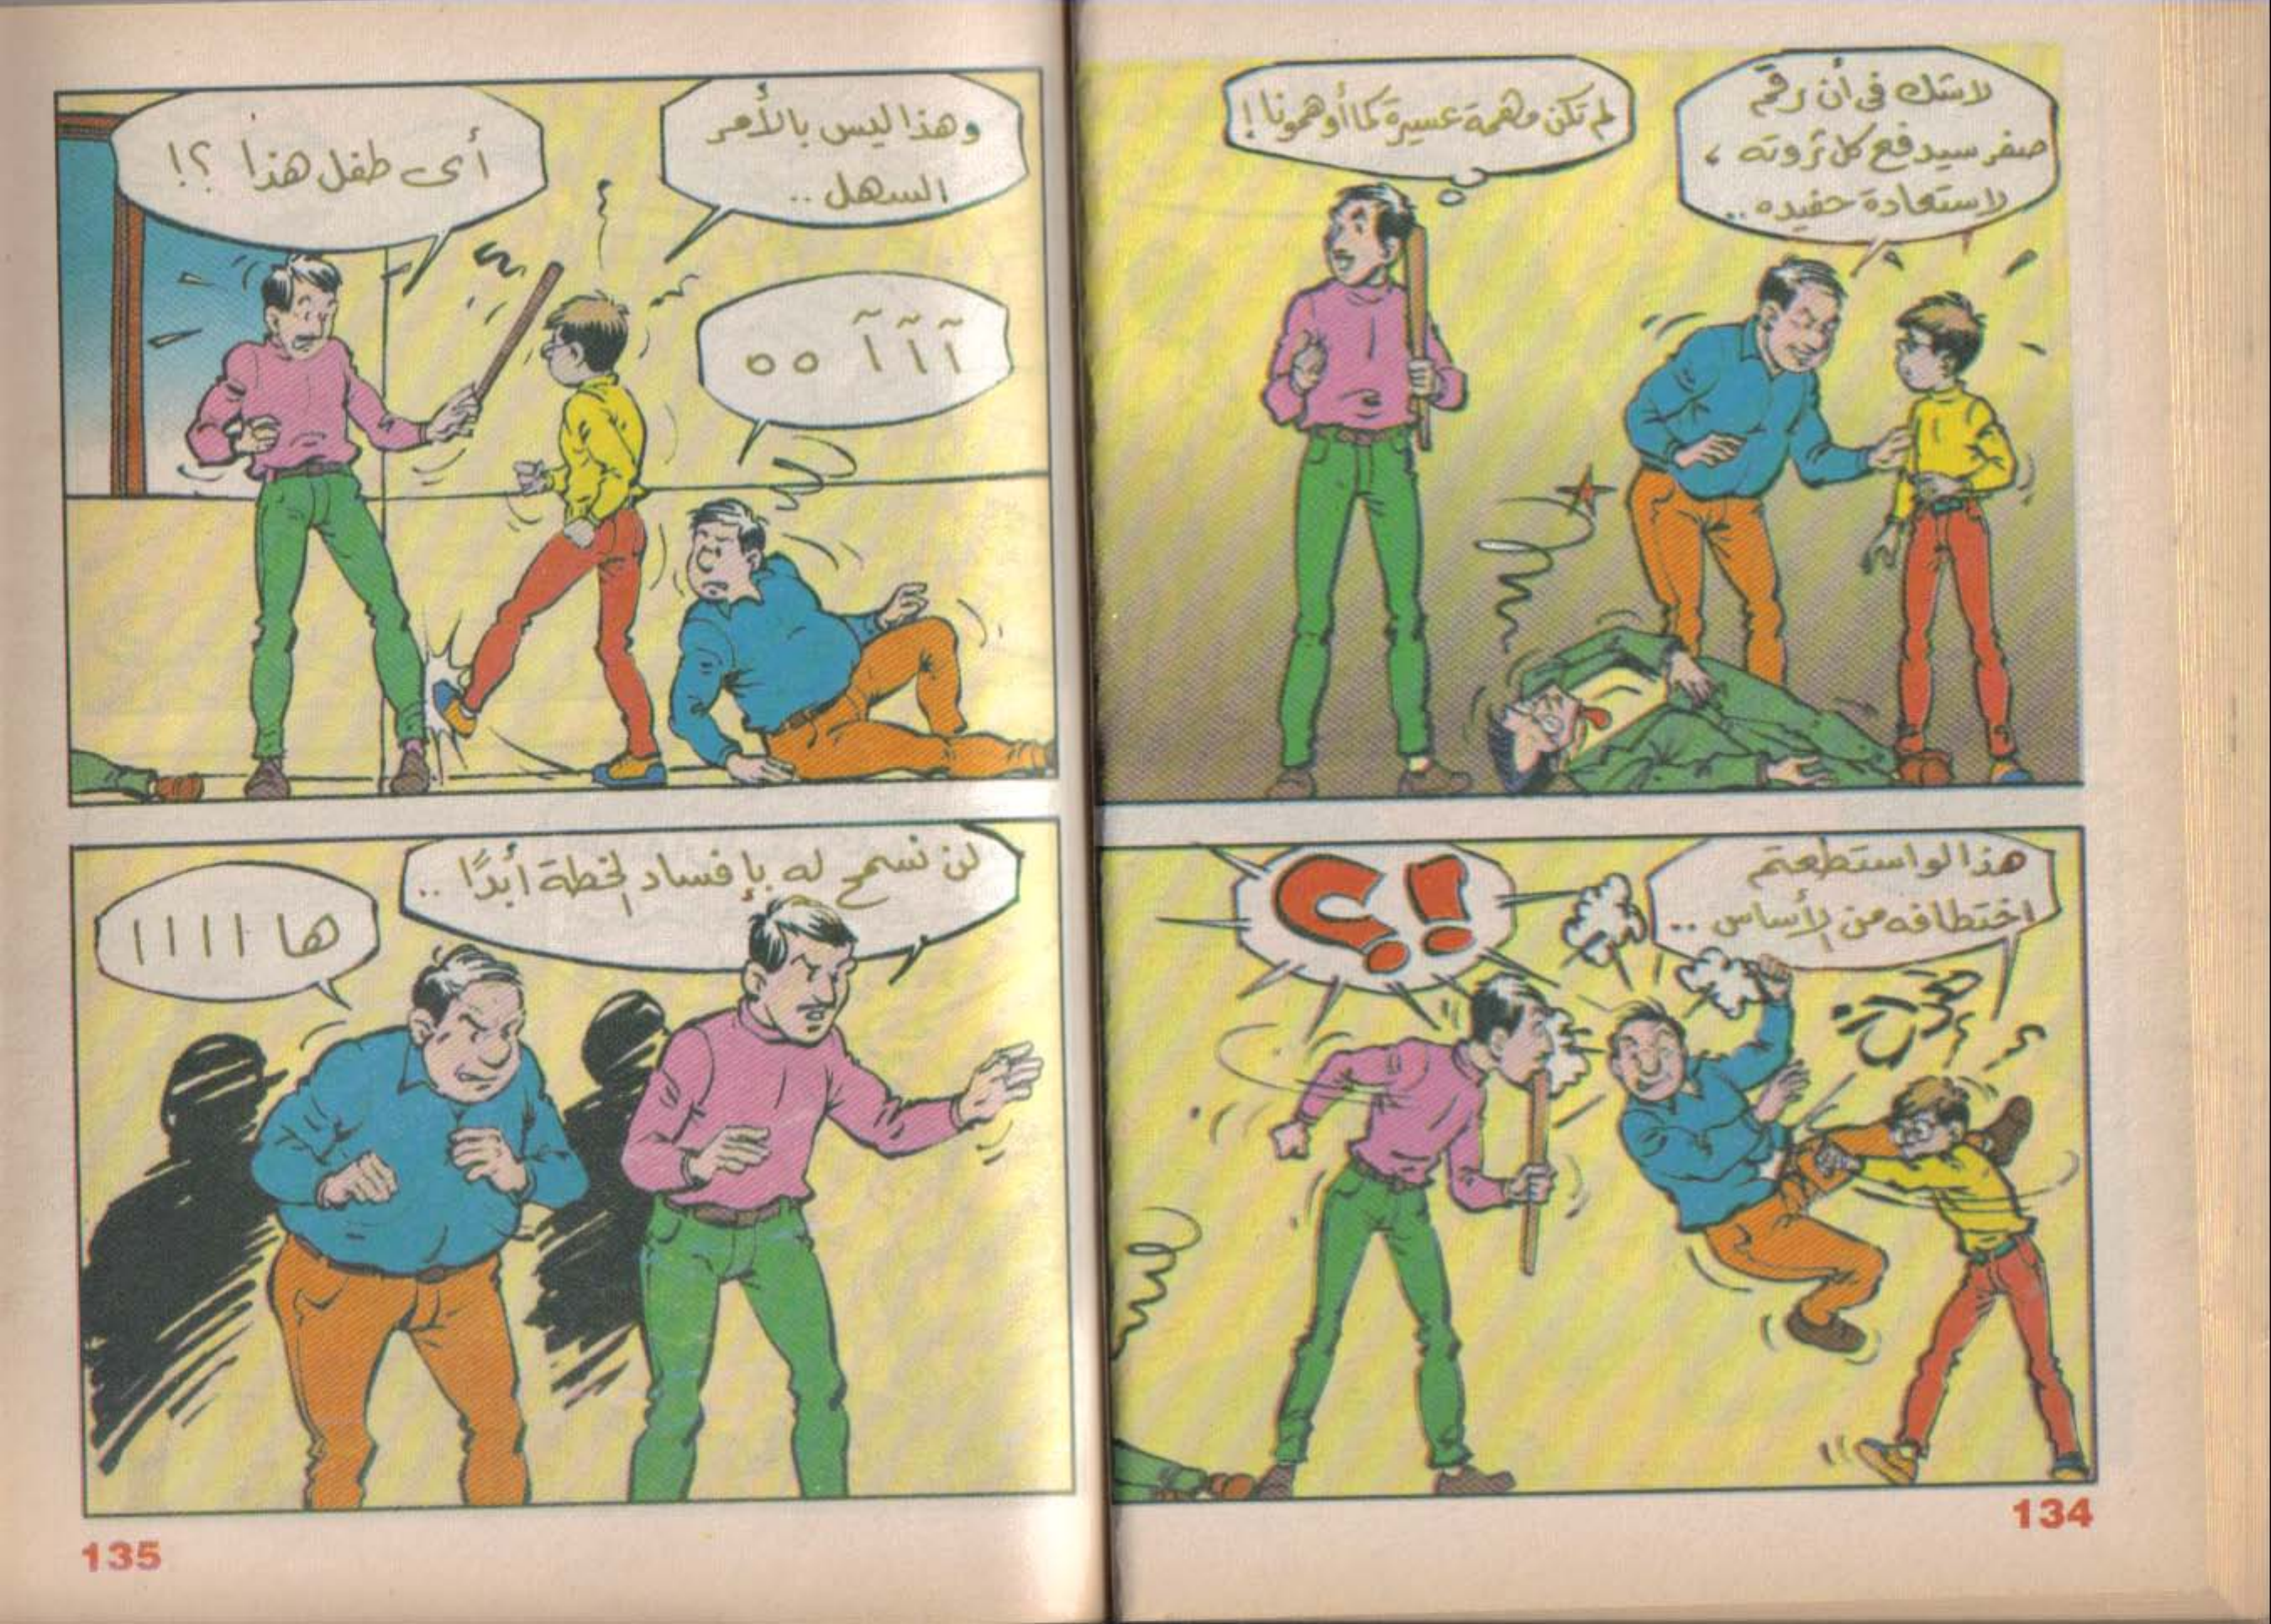 لاشك فى أن رقم
صفر سيدفع كل ثروته ،
لاستعادة حفيده ..
لم تكن مهمة عسيرة كما أوهمونا !
هذا لو استطعتم
اختطافه من الأساس ..
!؟
134
وهذا ليس بالأمر
السهل ..
آ آ آ ه ه
أى طفل هذا ؟!
لن نسمح له بإفساد الخطة أبدًا ..
ها ا ا ا ا
135